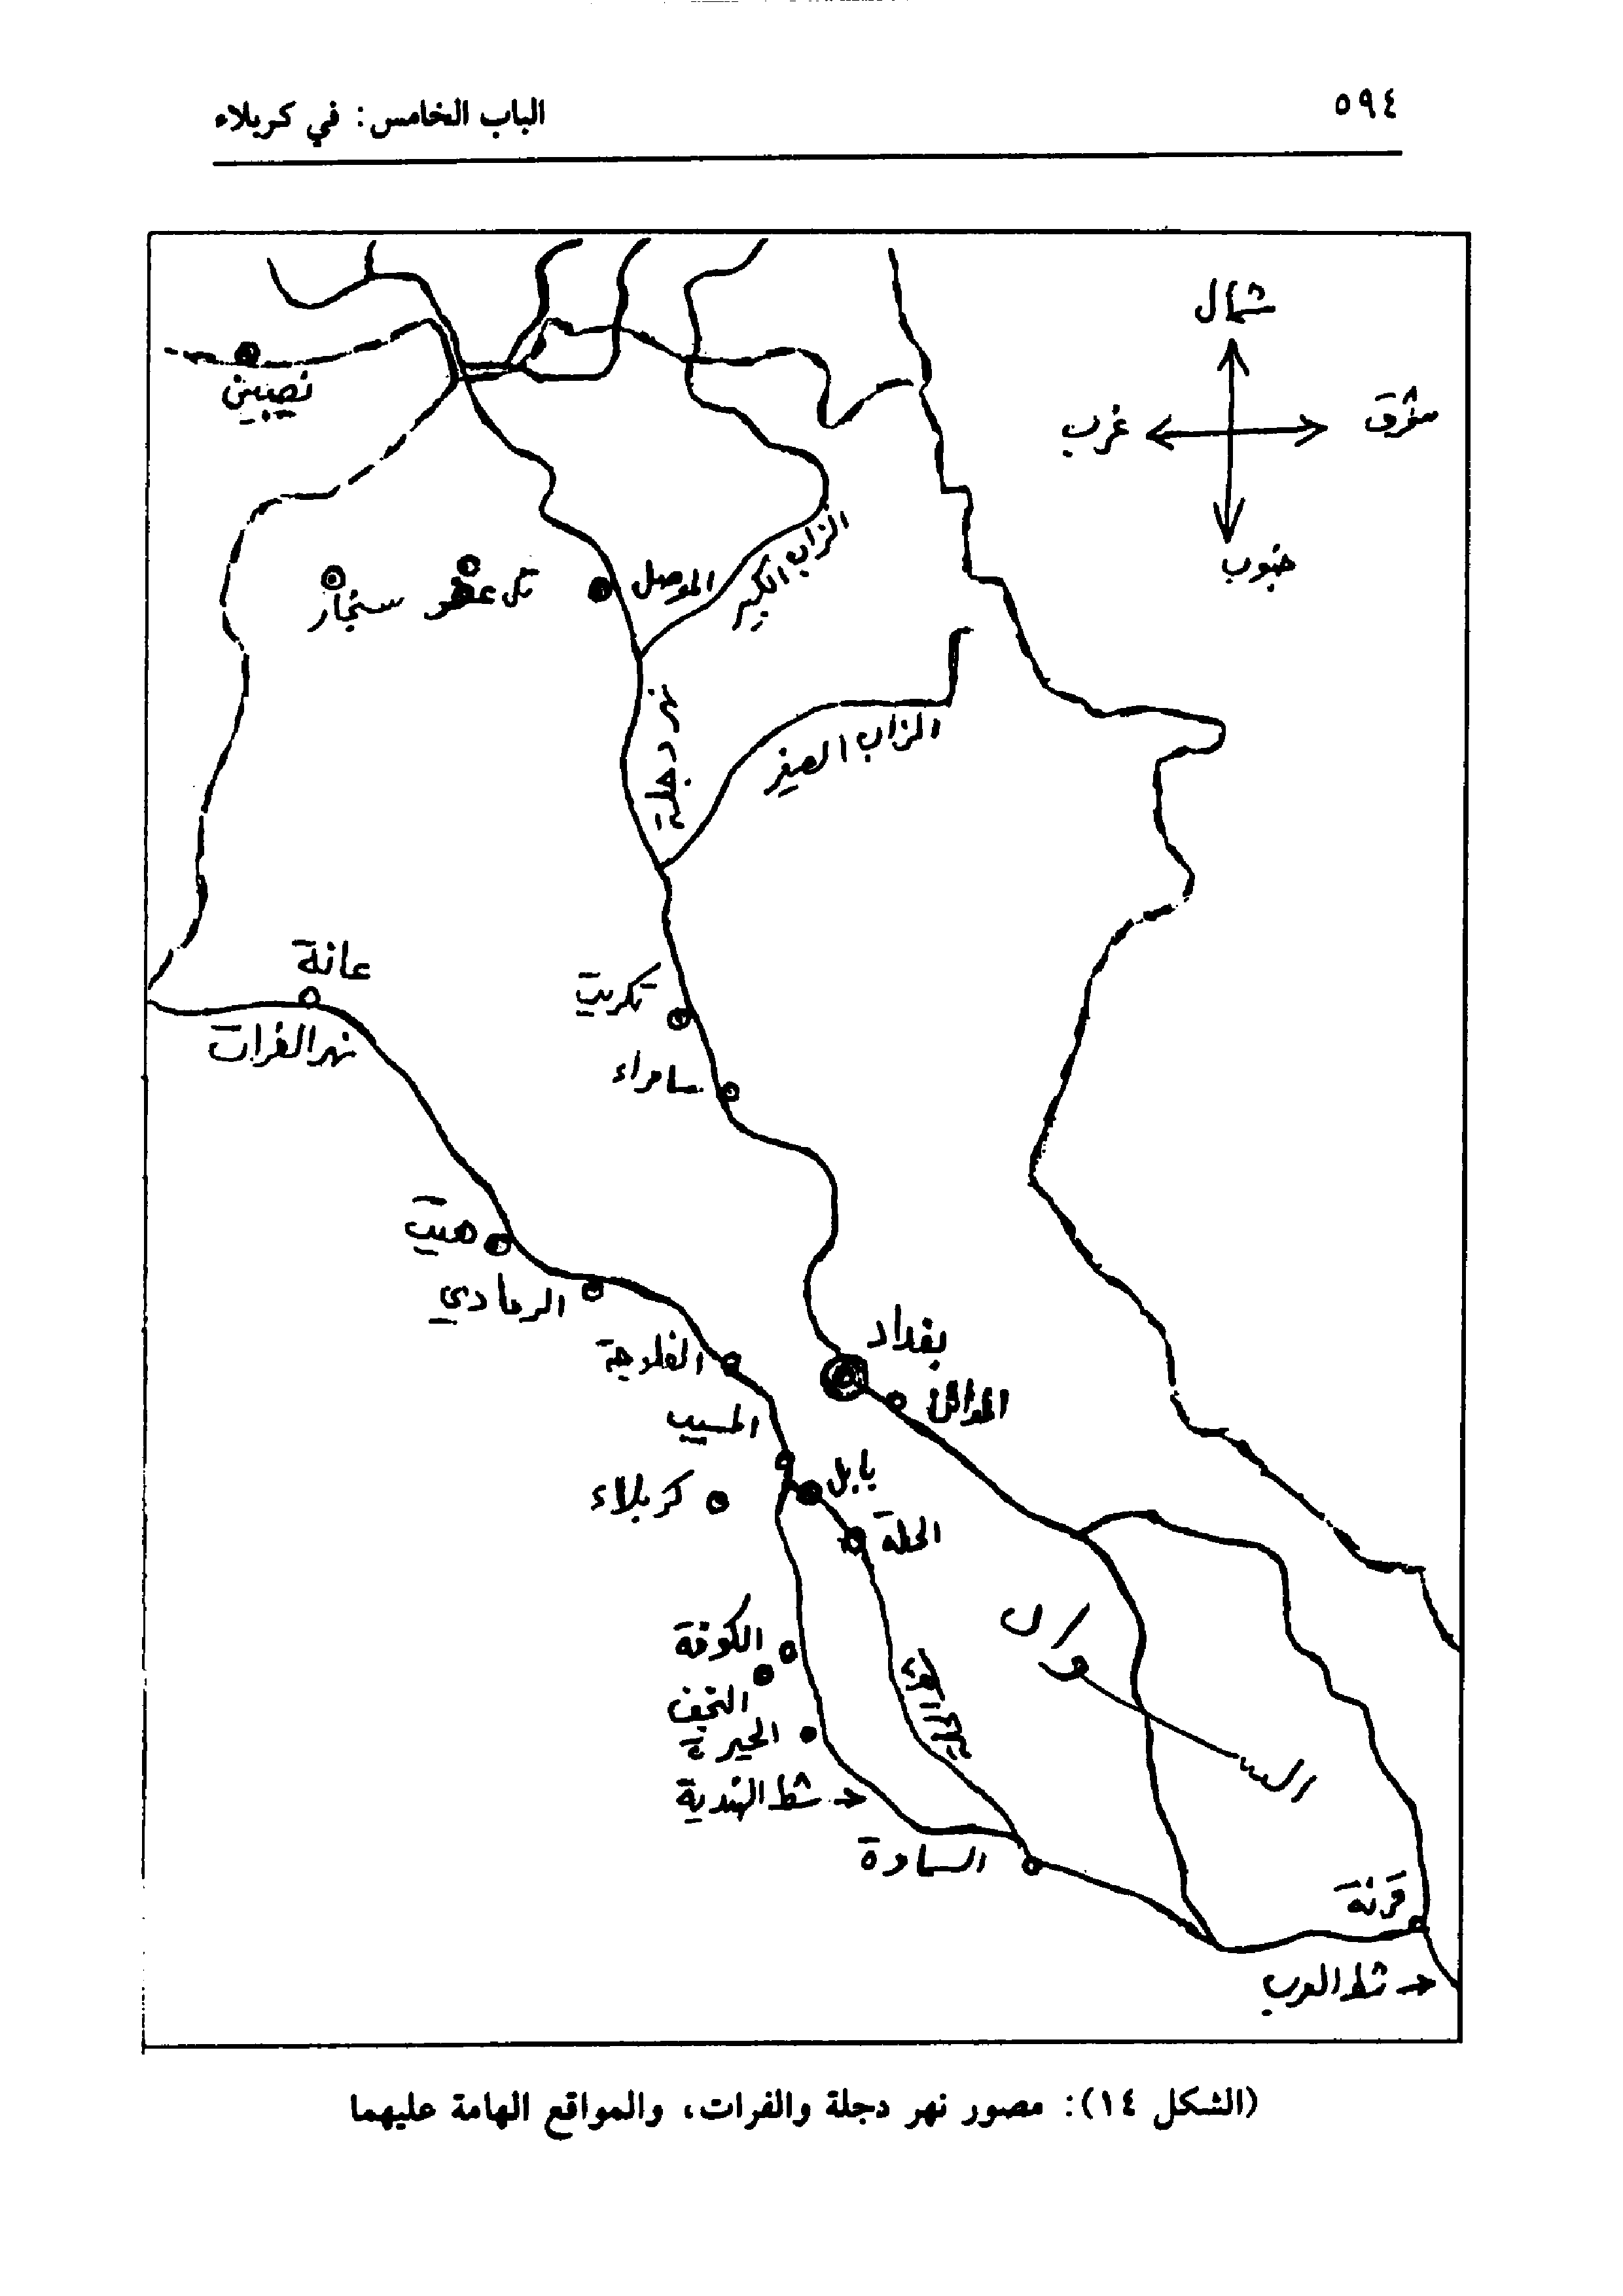 ٥٩٤
الباب الخامس: في كربلاء
شمال
شرق
غرب
جنوب
نصيبين
الزاب الكبير
الموصل
تل عفر
سنجار
نهر دجلة
الزاب الصغير
عانة
نهر الفرات
تكريت
سامراء
هيت
الرمادي
بغداد
الفلوجة
المدائن
المسيب
بابل
كربلاء
الحلة
الكوفة
النجف
الحيرة
السواد
شط الهندية
السماوة
قرنة
شط العرب
(الشكل ١٤): مصور نهر دجلة والفرات، والمواقع الهامة عليهما